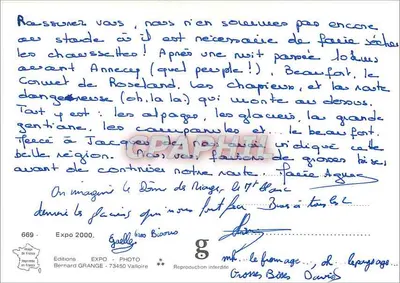 Rassurez vous, nous n'en sommes pas encore
au stade où il est nécessaire de faire sécher
les chaussettes! Après une nuit passée 10 kms
avant Annecy (quel peuple!), Beaufort, le
Cormet de Roselend, les chapieux, et la route
dangereuse (oh, la la!) qui monte au dessus.
Tout y est: les alpages, les glaciers, la grande
gentiane, les campanules et... le beaufort.
Merci à Jacques de nous avoir indiqué cette
belle région. Nous vous faisons de grosses bises
avant de continuer notre route. Marie Agnès
On imagine le Dôme de Miage, le Mt Blanc
derrière les glaciers que nous font peu Bises à tous les
669 - Expo 2000.
Gaelle
Gros Bisous
Image de France
Editions EXPO - PHOTO
Bernard GRANGE - 73450 Valloire
g
Reproduction interdite
le fromage, oh le paysage
Grosses Bises David
GRAPHIL